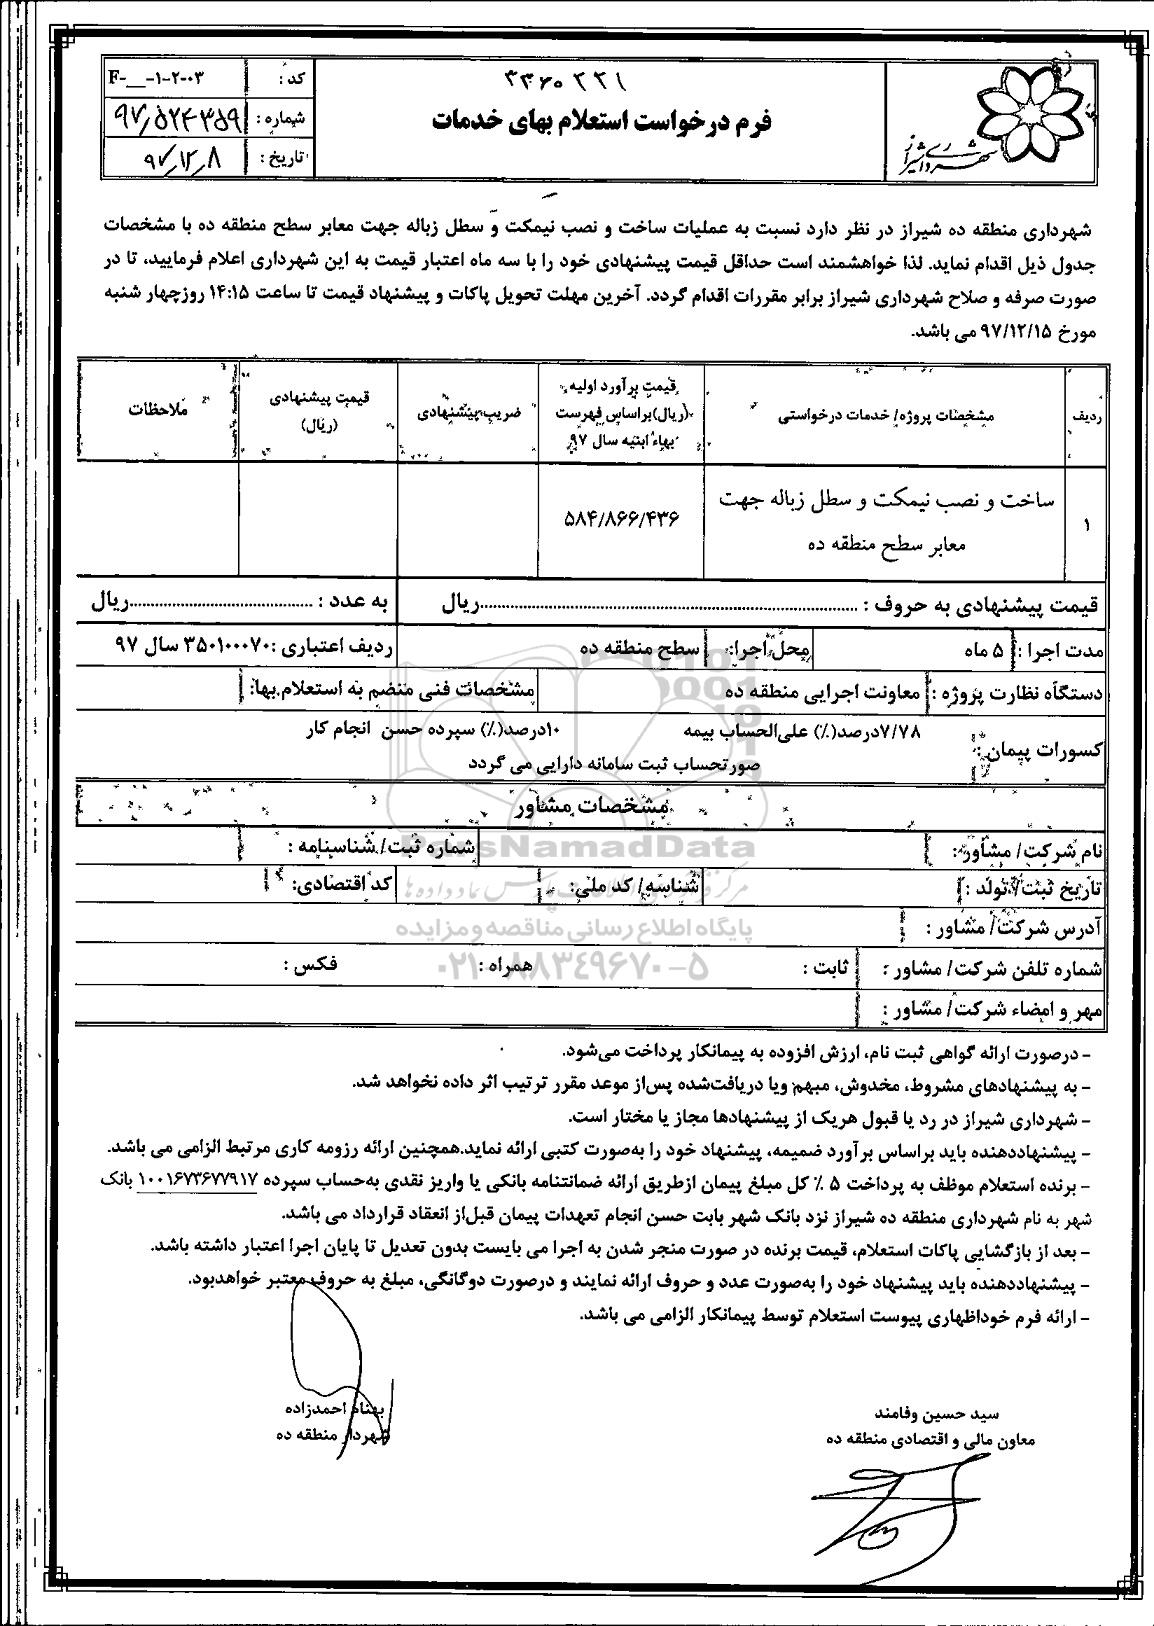 شهرداری شیراز
۳۳۶۰۲۲۱
فرم درخواست استعلام بهای خدمات
کد : F-__-۱-۲-۰۳
شماره : ۹۷٫۵۲۴۳۵۹
تاریخ : ۹۷٫۱۲٫۸
شهرداری منطقه ده شیراز در نظر دارد نسبت به عملیات ساخت و نصب نیمکت و سطل زباله جهت معابر سطح منطقه ده با مشخصات
جدول ذیل اقدام نماید. لذا خواهشمند است حداقل قیمت پیشنهادی خود را با سه ماه اعتبار قیمت به این شهرداری اعلام فرمایید، تا در
صورت صرفه و صلاح شهرداری شیراز برابر مقررات اقدام گردد. آخرین مهلت تحویل پاکات و پیشنهاد قیمت تا ساعت ۱۴:۱۵ روزچهار شنبه
مورخ ۹۷/۱۲/۱۵ می باشد.
ردیف
مشخصات پروژه/ خدمات درخواستی
قیمت برآورد اولیه
(ریال)براساس فهرست
بهاء ابنیه سال ۹۷
ضریب پیشنهادی
قیمت پیشنهادی
(ریال)
ملاحظات
۱
ساخت و نصب نیمکت و سطل زباله جهت
معابر سطح منطقه ده
۵۸۴/۸۶۶/۴۳۶
قیمت پیشنهادی به حروف : ................................................ریال
به عدد : ................................ریال
مدت اجرا : ۵ ماه
محل اجرا: سطح منطقه ده
ردیف اعتباری :۳۵۰۱۰۰۰۷۰ سال ۹۷
دستگاه نظارت پروژه : معاونت اجرایی منطقه ده
مشخصات فنی منضم به استعلام بها:
کسورات پیمان :
۷/۷۸درصد(٪) علی‌الحساب بیمه
۱۰درصد(٪) سپرده حسن انجام کار
صورتحساب ثبت سامانه دارایی می گردد
مشخصات مشاور
نام شرکت/ مشاور :
شماره ثبت/ شناسنامه :
تاریخ ثبت/ تولد :
شناسه/ کد ملی:
کد اقتصادی:
آدرس شرکت/ مشاور :
شماره تلفن شرکت/ مشاور :
ثابت :
همراه :
فکس :
مهر و امضاء شرکت/ مشاور :
ParsNamadData
پایگاه اطلاع رسانی مناقصه و مزایده
۰۲۱-۸۸۳۴۹۶۷۰-۵
- درصورت ارائه گواهی ثبت نام، ارزش افزوده به پیمانکار پرداخت می‌شود.
- به پیشنهادهای مشروط، مخدوش، مبهم ویا دریافت‌شده پس‌از موعد مقرر ترتیب اثر داده نخواهد شد.
- شهرداری شیراز در رد یا قبول هریک از پیشنهادها مجاز یا مختار است.
- پیشنهاددهنده باید براساس برآورد ضمیمه، پیشنهاد خود را به‌صورت کتبی ارائه نماید.همچنین ارائه رزومه کاری مرتبط الزامی می باشد.
- برنده استعلام موظف به پرداخت ۵ ٪ کل مبلغ پیمان ازطریق ارائه ضمانتنامه بانکی یا واریز نقدی به‌حساب سپرده ۱۰۰۱۶۷۳۶۷۷۹۱۷ بانک
شهر به نام شهرداری منطقه ده شیراز نزد بانک شهر بابت حسن انجام تعهدات پیمان قبل‌از انعقاد قرارداد می باشد.
- بعد از بازگشایی پاکات استعلام، قیمت برنده در صورت منجر شدن به اجرا می بایست بدون تعدیل تا پایان اجرا اعتبار داشته باشد.
- پیشنهاددهنده باید پیشنهاد خود را به‌صورت عدد و حروف ارائه نمایند و درصورت دوگانگی، مبلغ به حروف معتبر خواهدبود.
- ارائه فرم خوداظهاری پیوست استعلام توسط پیمانکار الزامی می باشد.
سید حسین وفامند
معاون مالی و اقتصادی منطقه ده
بهنام احمدزاده
شهردار منطقه ده